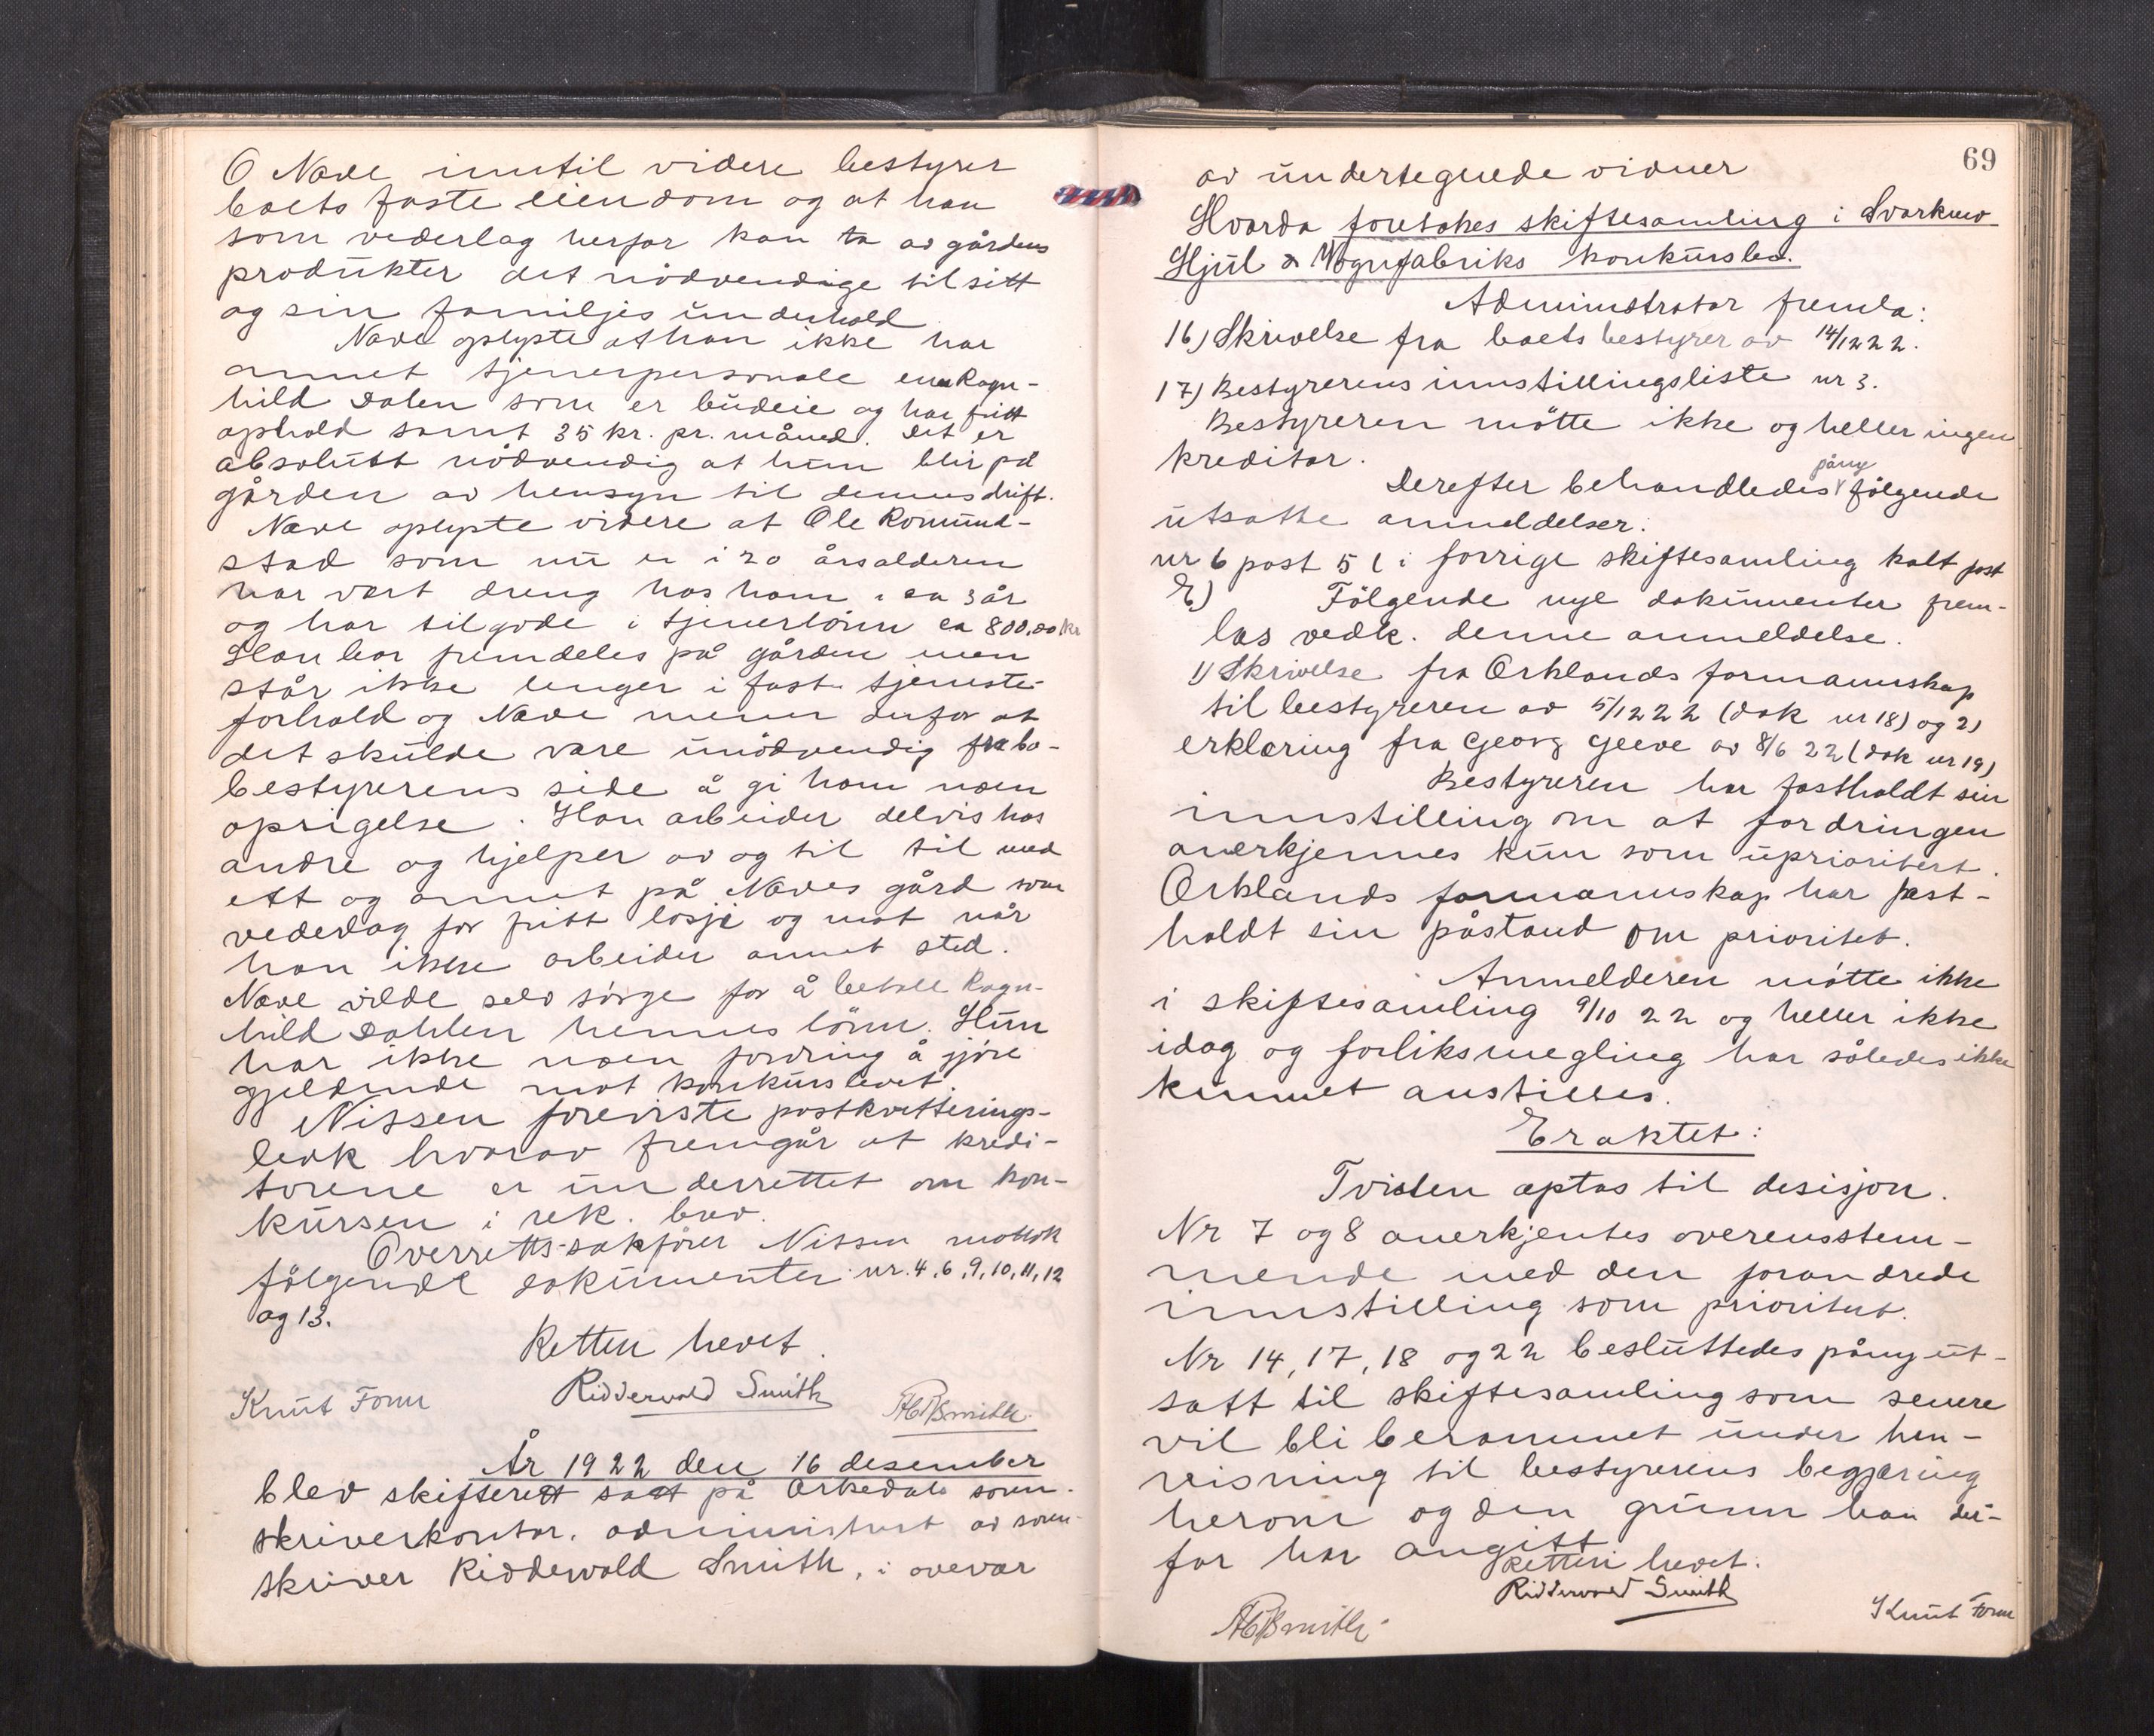 O Næve inntil videre bestyrer
boets faste eiendom og at han
som vederlag herfor kan ta av gårdens
produkter det nödvendige til sitt
og sin familjes underhold
Næve oplyste at han ikke har
annet tjenerpersonale enn Ragn-
hild Dalen som er budeie og har fritt
ophold samt 35 kr. pr. måned. Det er
absolutt nödvendig at hun blir på
gården av hensyn til dennes drift.
Næve oplyste videre at Ole Romund-
stad som nu er i 20 årsalderen
har vært dreng hos ham i ca 3 år
og har tilgode i tjenerlönn ca 800,00 kr
Han bor fremdeles på gården men
står ikke lenger i fast tjeneste-
forhold og Næve mener derfor at
det skulde være unödvendig fra bo-
bestyrerens side å gi ham noen
opsigelse. Han arbeider delvis hos
andre og hjelper av og til til med
ett og annet på Næves gård som
vederlag for fritt losji og mat når
han ikke arbeider annet sted.
Næve vilde selv sörge for å betale Ragn-
hild Dahlen hennes lönn. Hun
har ikke noen fordring å gjöre
gjeldende mot konkursboet.
Nissen foreviste postkvitterings-
bok hvorav fremgår at kredi-
torene er underrettet om kon-
kursen i rek. brev.
Overretts-sakförer Nissen mottok
fölgende dokumenter nr. 4, 6, 9, 10, 11, 12
og 13.
Retten hevet.
Ridderwold Smith
Knut Forun
År 1922 den 16 desember
blev skifterett satt på Orkedals soren-
skriverkontor, administrert av soren-
skriver Ridderwold Smith, i overvær
69
av undertegnede vidner
Hvorda foretokes skiftesamling i Svorkmo
Hjul & Vognfabriks konkursbo.
Administrator fremla:
16) Skrivelse fra boets bestyrer av 14/12 22.
17) Bestyrerens innstillingsliste nr 3.
Bestyreren mötte ikke og heller ingen
kreditor.
påny
Derefter behandledes fölgende
utsatte anmeldelser:
nr 6 post 5 (i forrige skiftesamling kalt post
E) Fölgende nye dokumenter frem-
las vedk. denne anmeldelse.
1) Skrivelse fra Orklands formannskap
til bestyreren av 5/12 22 (dok nr 18) og 2)
erklæring fra Georg Greve av 8/6 22 (dok nr 19)
Bestyreren har fastholdt sin
innstilling om at fordringen
anerkjennes kun som uprioritert.
Orklands formannskap har fast-
holdt sin påstand om prioritet.
Anmelderen mötte ikke
i skiftesamling 9/10 22 og heller ikke
idag og forliksmegling har således ikke
kunnet anstilles.
Eraktet:
Tvisten optas til desisjon.
Nr 7 og 8 anerkjentes overensstem-
mende med den forandrede
innstilling som prioritert.
Nr 14, 17, 18 og 22 besluttedes påny ut-
satt til skiftesamling som senere
vil bli berammet under hen-
visning til bestyrerens begjæring
herom og den grunn han der-
for har angitt
Retten hevet.
Ridderwold Smith
Knut Forun